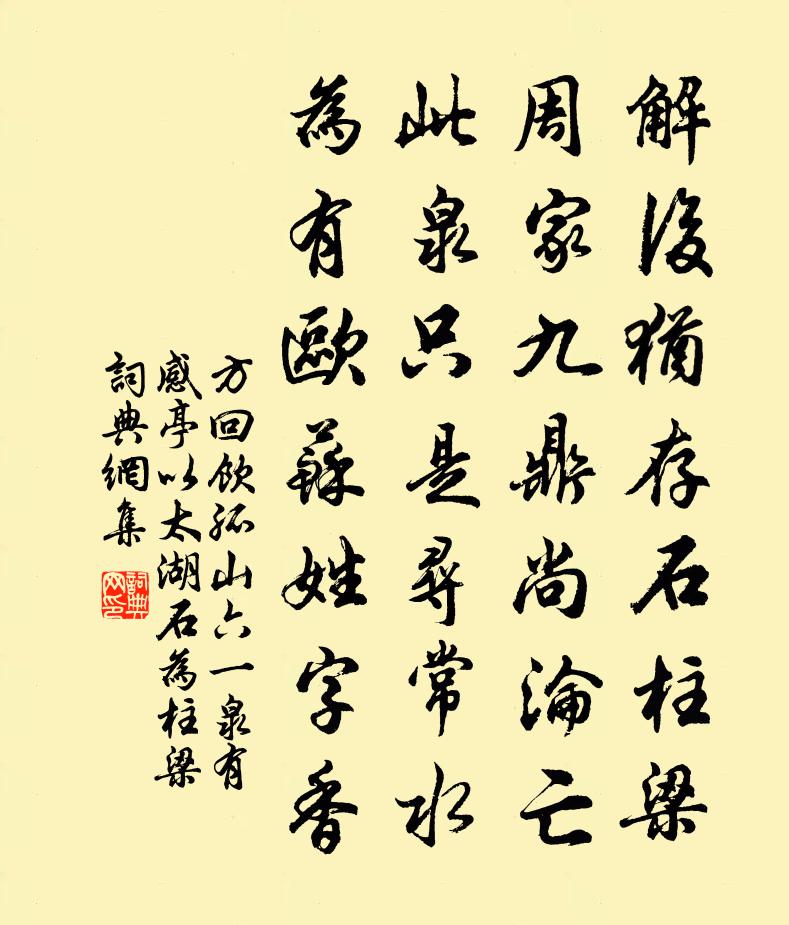 解後猶存石柱梁
周家九鼎尚淪亡
此泉只是尋常水
為有歐蘇姓字香
方回飲孤山六一泉有
感亭以太湖石為柱梁
詞典網集
詞典网印